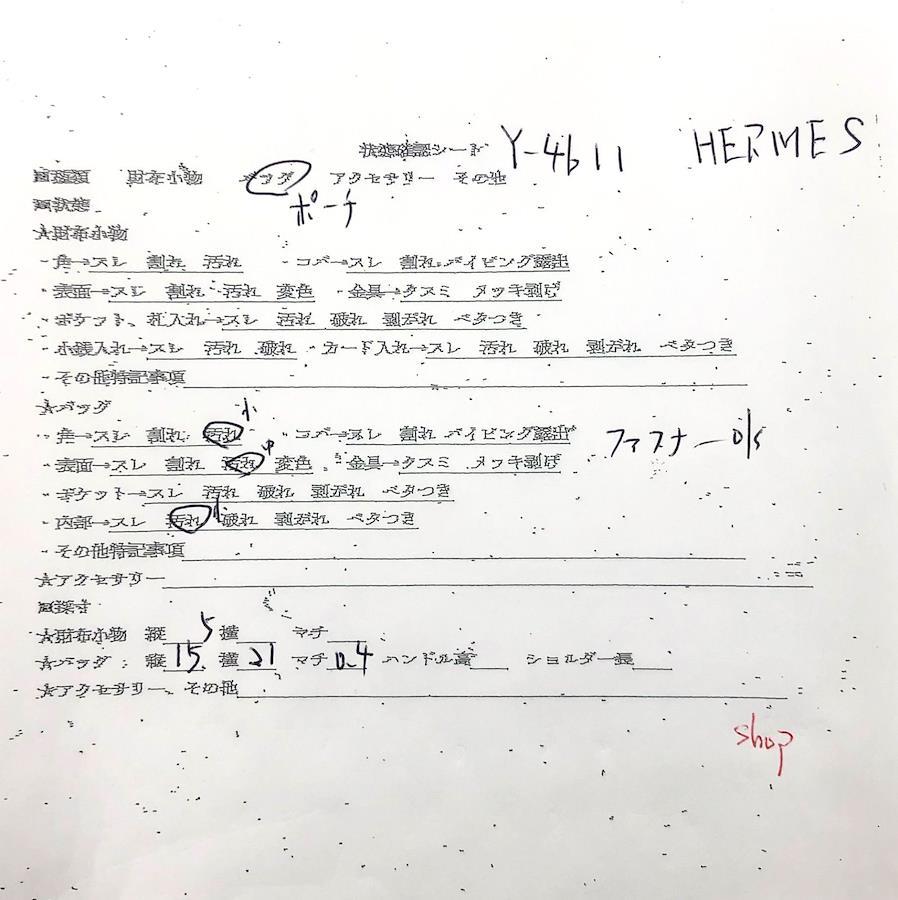 状態確認シート Y-4611 HERMES
■種類 財布小物 バッグ アクセサリー その他
ポーチ
■状態
★財布小物
・角→スレ 割れ 汚れ ・コバ→スレ 割れ パイピング露出
・表面→スレ 割れ 汚れ 変色 ・金具→クスミ メッキ剥げ
・ポケット、札入れ→スレ 汚れ 破れ 剥がれ ベタつき
・小銭入れ→スレ 汚れ 破れ ・カード入れ→スレ 汚れ 破れ 剥がれ ベタつき
・その他特記事項
★バッグ 小
・角→スレ 割れ 汚れ ・コバ→スレ 割れ パイピング露出 ファスナー
・表面→スレ 割れ 汚れ 中 変色 ・金具→クスミ メッキ剥げ
・ポケット→スレ 汚れ 破れ 剥がれ ベタつき
・内部→スレ 汚れ 小 破れ 剥がれ ベタつき
・その他特記事項
★アクセサリー
■採寸
★財布小物 縦 5 横 マチ
★バッグ：縦 15 横 21 マチ 0.4 ハンドル高 ショルダー長
★アクセサリー、その他
shop